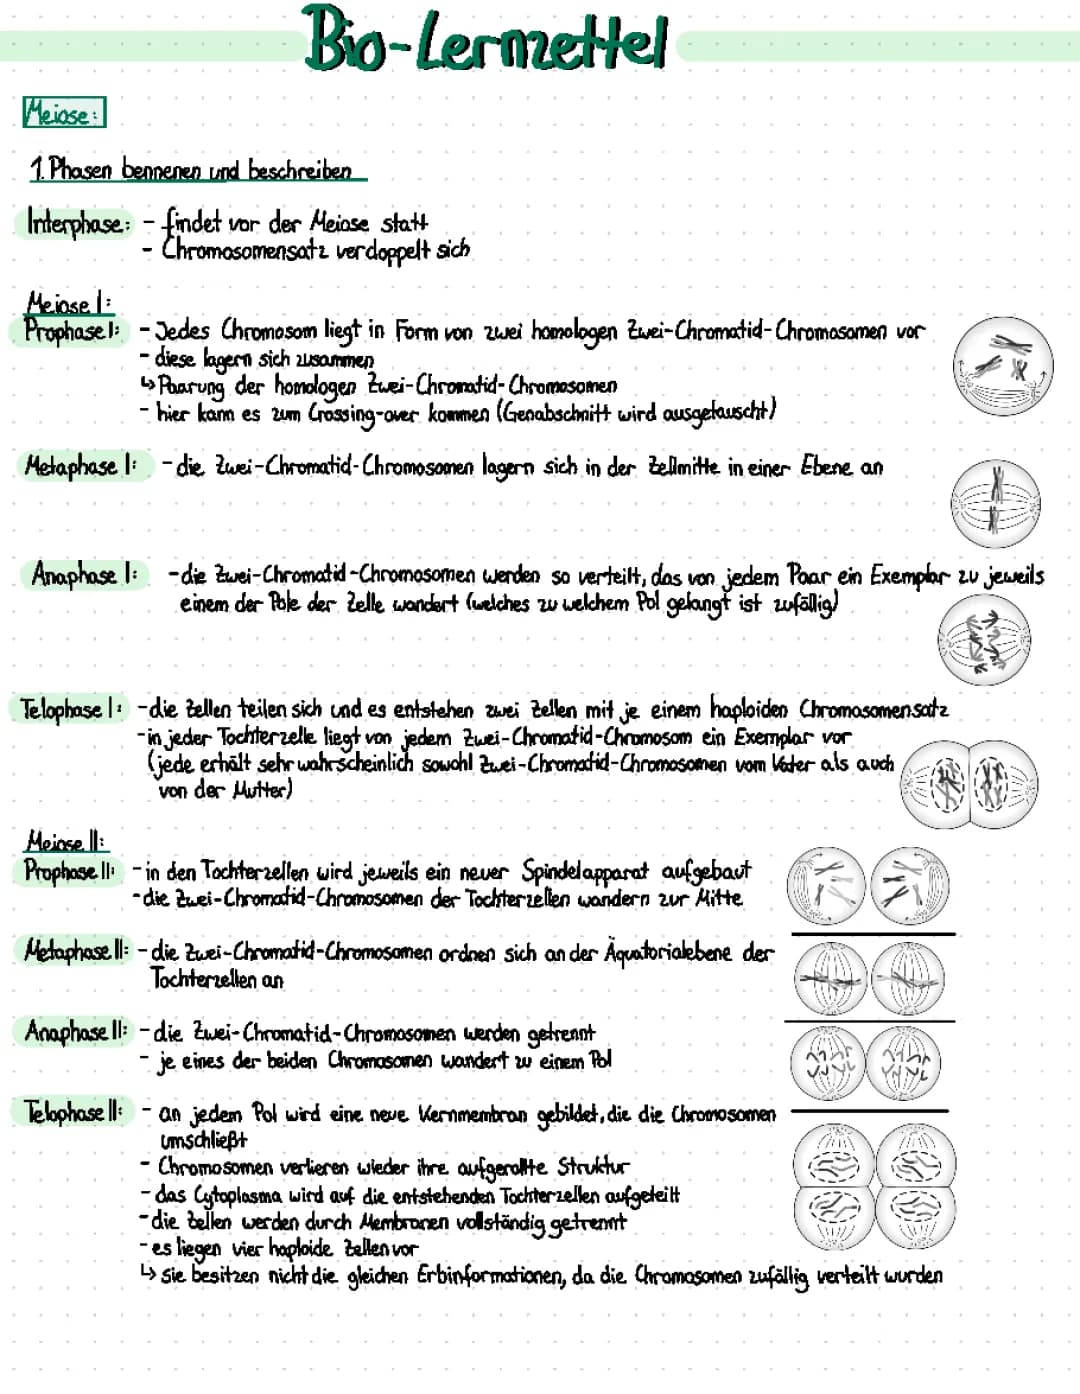 Bio-Lernzettel
Meiose:
1. Phasen bennenen und beschreiben
Interphase: - findet vor der Meiose statt
- Chromosomensatz verdoppelt sich
Meiose I:
Prophase I: - Jedes Chromosom liegt in Form von zwei homologen Zwei-Chromatid-Chromosomen vor
- diese lagern sich zusammen
↳ Paarung der homologen Zwei-Chromatid-Chromosomen
- hier kann es zum Crossing-over kommen (Genabschnitt wird ausgetauscht)
Metaphase I: - die Zwei-Chromatid-Chromosomen lagern sich in der Zellmitte in einer Ebene an
Anaphase I: - die Zwei-Chromatid-Chromosomen werden so verteilt, das von jedem Paar ein Exemplar zu jeweils
einem der Pole der Zelle wandert (welches zu welchem Pol gelangt ist zufällig)
Telophase I: - die Zellen teilen sich und es entstehen zwei Zellen mit je einem haploiden Chromosomensatz
- in jeder Tochterzelle liegt von jedem Zwei-Chromatid-Chromosom ein Exemplar vor
(jede erhält sehr wahrscheinlich sowohl Zwei-Chromatid-Chromosomen vom Vater als auch
von der Mutter)
Meiose II:
Prophase II: - in den Tochterzellen wird jeweils ein neuer Spindelapparat aufgebaut
- die Zwei-Chromatid-Chromosomen der Tochterzellen wandern zur Mitte
Metaphase II: - die Zwei-Chromatid-Chromosomen ordnen sich an der Äquatorialebene der
Tochterzellen an
Anaphase II: - die Zwei-Chromatid-Chromosomen werden getrennt
- je eines der beiden Chromosomen wandert zu einem Pol
Telophase II: - an jedem Pol wird eine neue Kernmembran gebildet, die die Chromosomen
umschließt
- Chromosomen verlieren wieder ihre aufgerollte Struktur
- das Cytoplasma wird auf die entstehenden Tochterzellen aufgeteilt
- die Zellen werden durch Membranen vollständig getrennt
- es liegen vier haploide Zellen vor
↳ Sie besitzen nicht die gleichen Erbinformationen, da die Chromosomen zufällig verteilt wurden